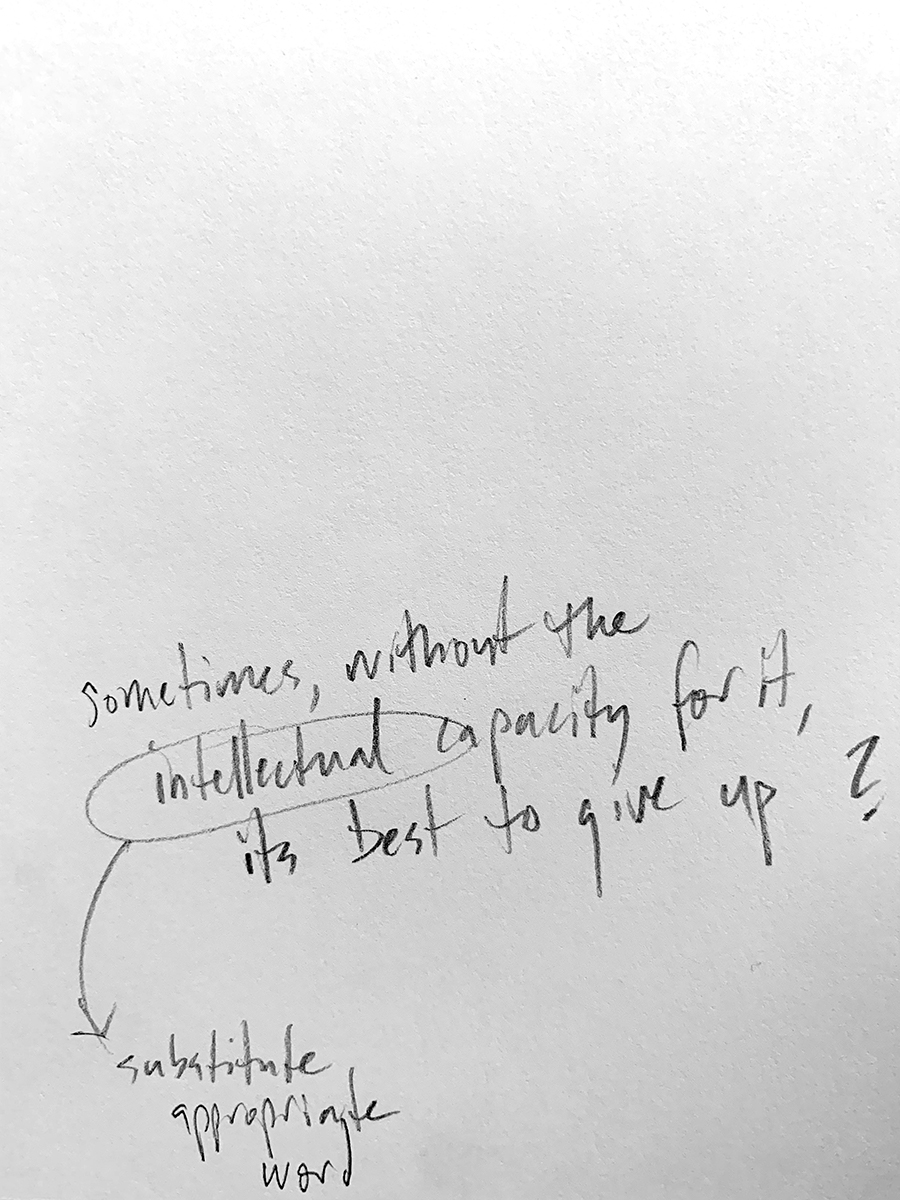 sometimes, without the
intellectual capacity for it,
its best to give up ?
substitute
appropriate
word